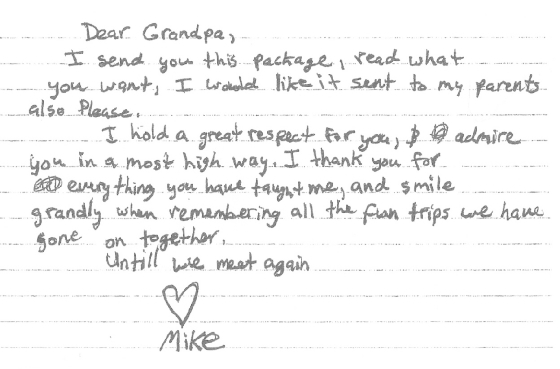 Dear Grandpa,
I send you this package, read what
you want, I would like it sent to my parents
also Please.
I hold a great respect for you, & admire
you in a most high way. I thank you for
everything you have taught me, and smile
grandly when remembering all the fun trips we have
gone on together.
Untill we meet again
Mike